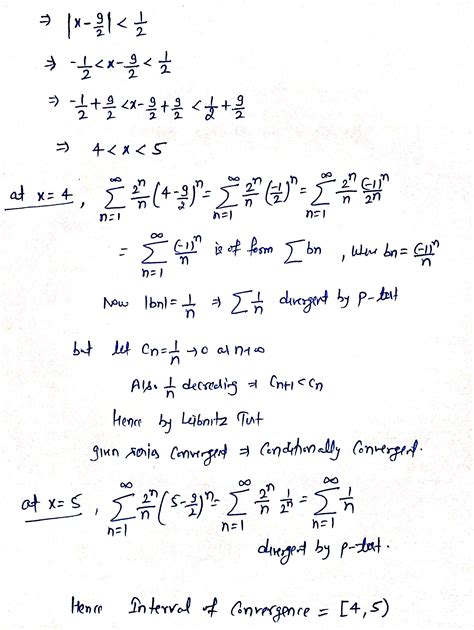 ⇒ |x - 9/2| < 1/2
⇒ -1/2 < x - 9/2 < 1/2
⇒ -1/2 + 9/2 < x - 9/2 + 9/2 < 1/2 + 9/2
⇒ 4 < x < 5
at x=4, ∑_{n=1}^{∞} 2^n/n (4 - 9/2)^n = ∑_{n=1}^{∞} 2^n/n (-1/2)^n = ∑_{n=1}^{∞} 2^n/n (-1)^n/2^n
= ∑_{n=1}^{∞} (-1)^n/n is of form ∑ bn, where bn = (-1)^n/n
Now |bn| = 1/n ⇒ ∑ 1/n divergent by p-test
but let Cn = 1/n → 0 as n→∞
Also 1/n decreasing ⇒ Cn+1 < Cn
Hence by Leibnitz Test
given series Converged ⇒ Conditionally Converged.
at x=5, ∑_{n=1}^{∞} 2^n/n (5 - 9/2)^n = ∑_{n=1}^{∞} 2^n/n 1/2^n = ∑_{n=1}^{∞} 1/n
divergent by p-test.
Hence Interval of Convergence = [4,5)